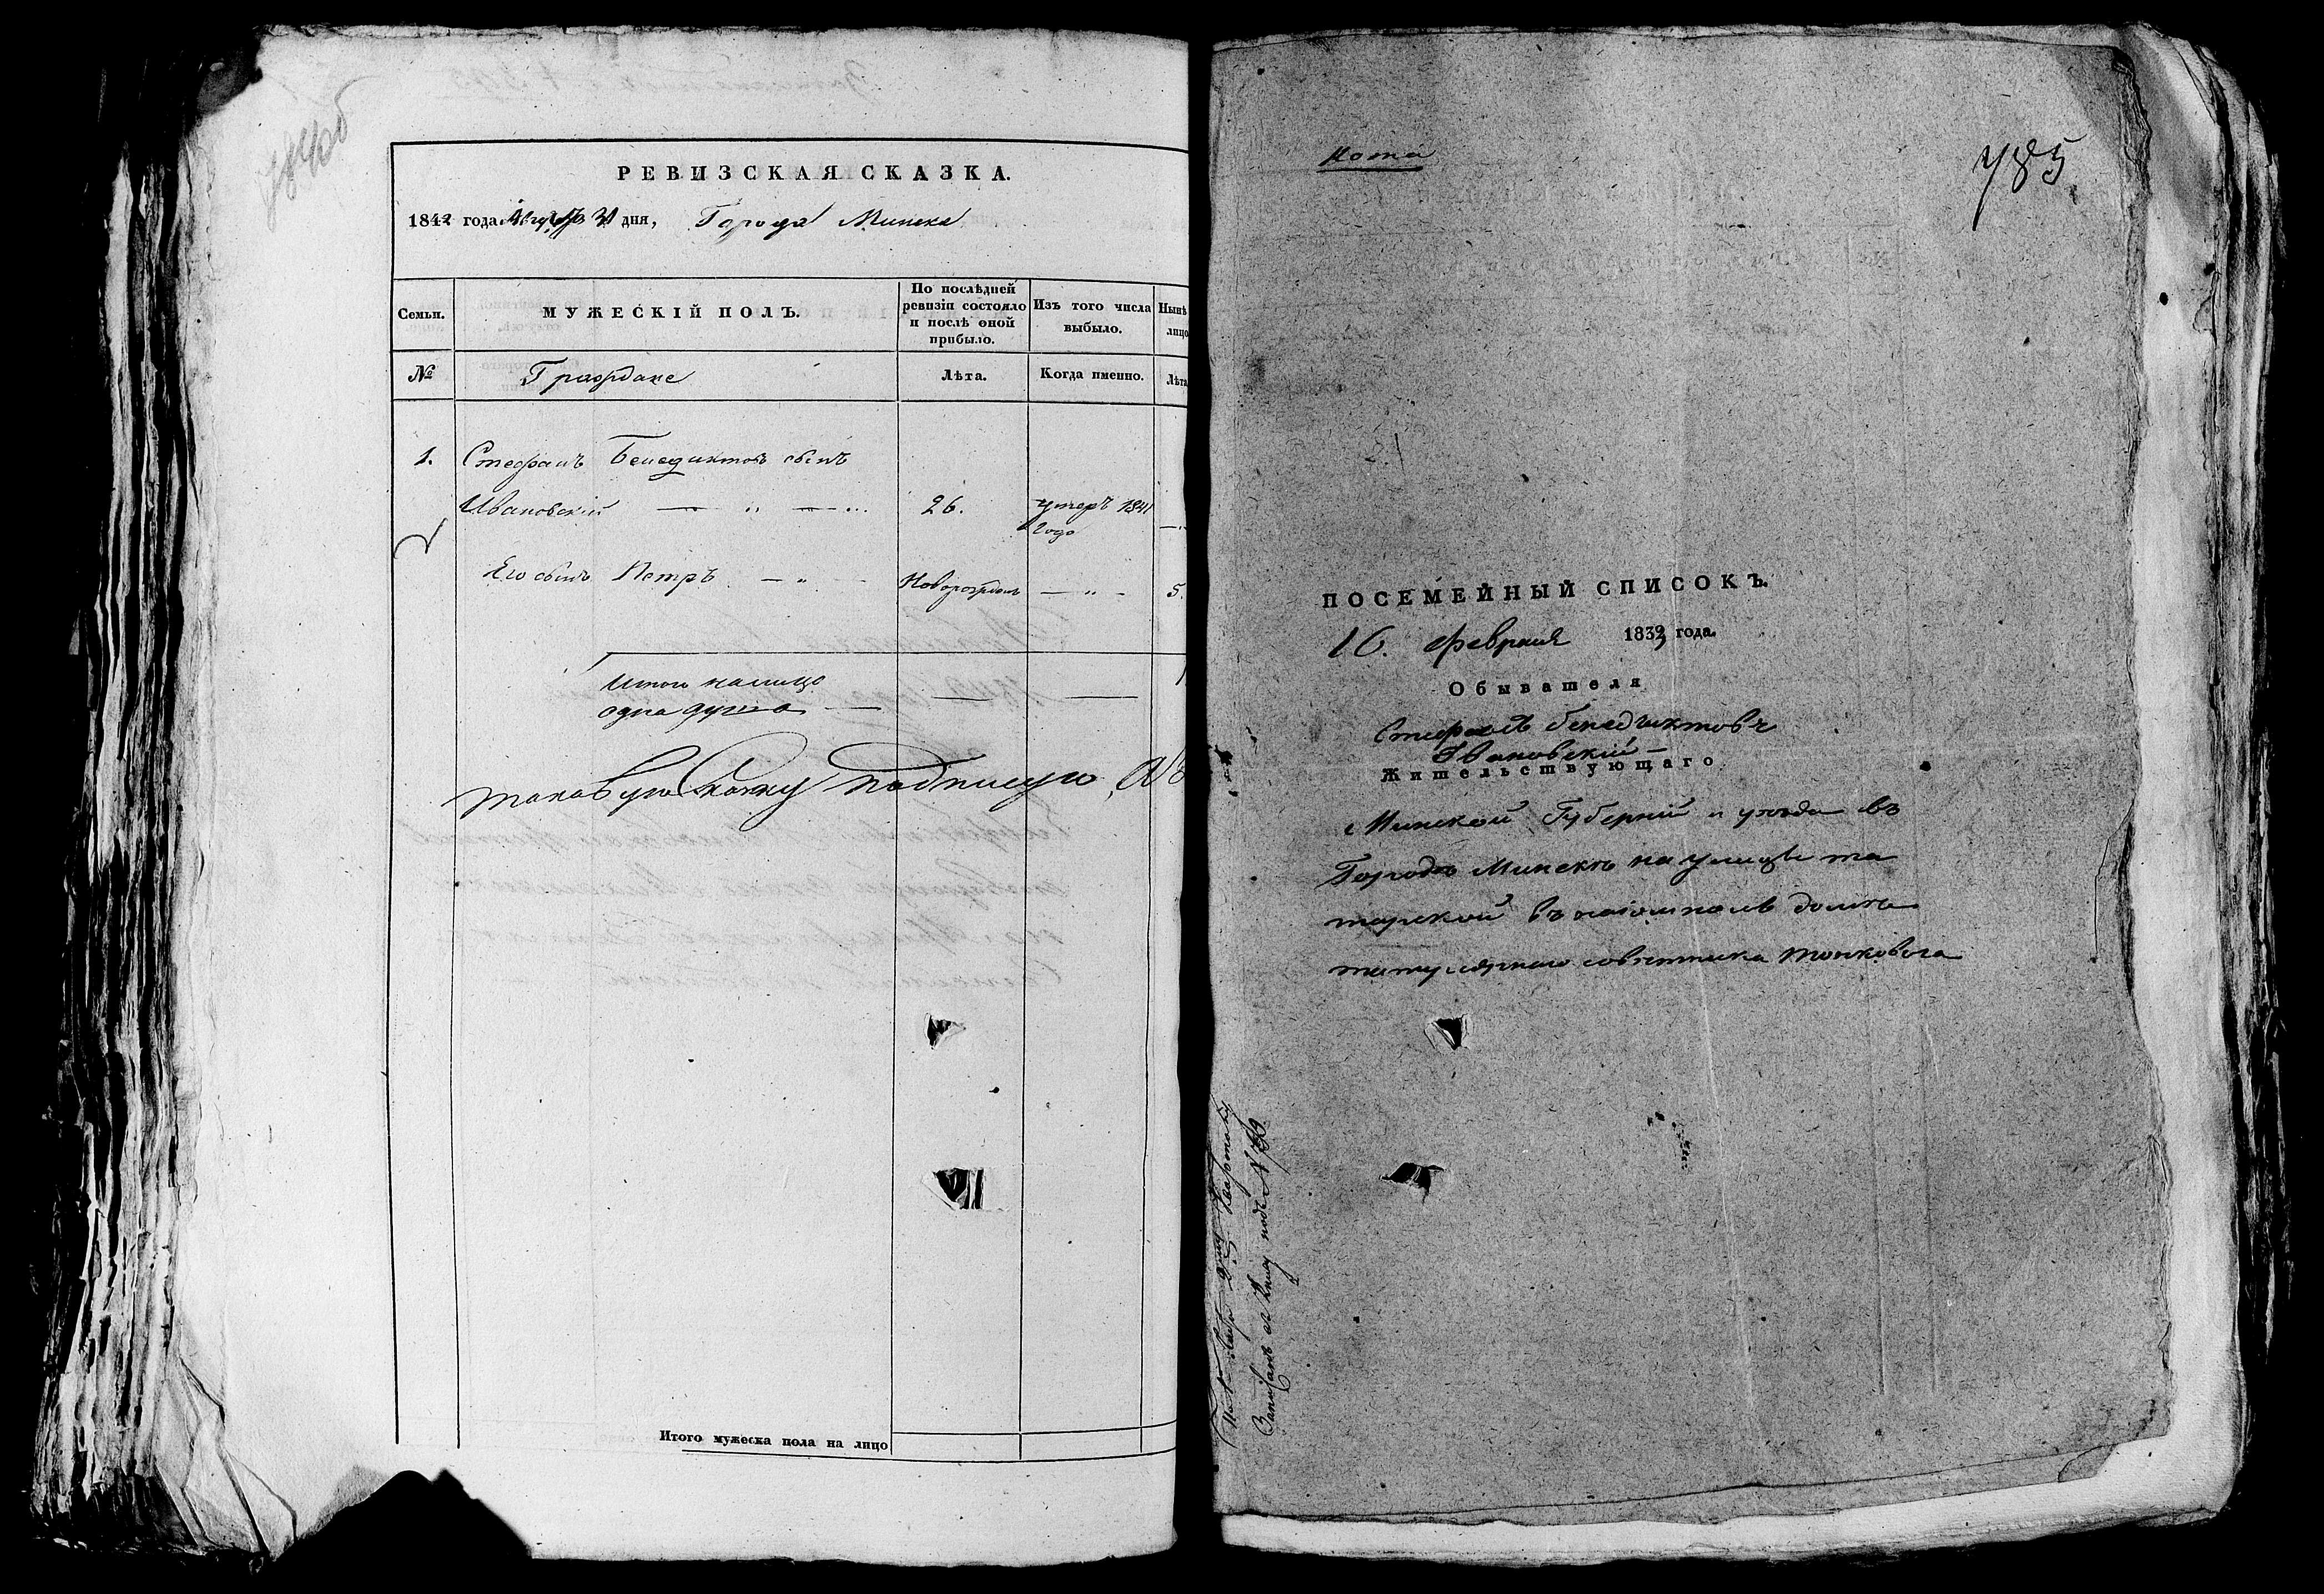 784об
РЕВИЗСКАЯ СКАЗКА.
1842 года 31 дня, Города Минска
Семьи.
МУЖЕСКІЙ ПОЛЪ.
По послѣдней ревизіи состояло и послѣ оной прибыло.
Изъ того числа выбыло.
Нынѣ лицо
№
Граждане
Лѣта.
Когда именно.
Лѣта
1. Стефанъ Бенедиктовъ сынъ
Ивановскій 26. умеръ 1841 года
Его сынъ Петръ Новорожден 5.
Итого налицо
одна душа
таковую сказку подписую,
Итого мужеска пола на лицо
Кота
785
ПОСЕМЕЙНЫЙ СПИСОКЪ.
16. февраля 1832 года.
Обывателя
Стефанъ Бенедиктовъ
Ивановскій
Жительствующаго
Минской Губерніи и уезда въ
Городѣ Минскѣ на улицѣ та
тарской въ домѣ
титулярнаго советника
Записанъ въ книгу подъ №